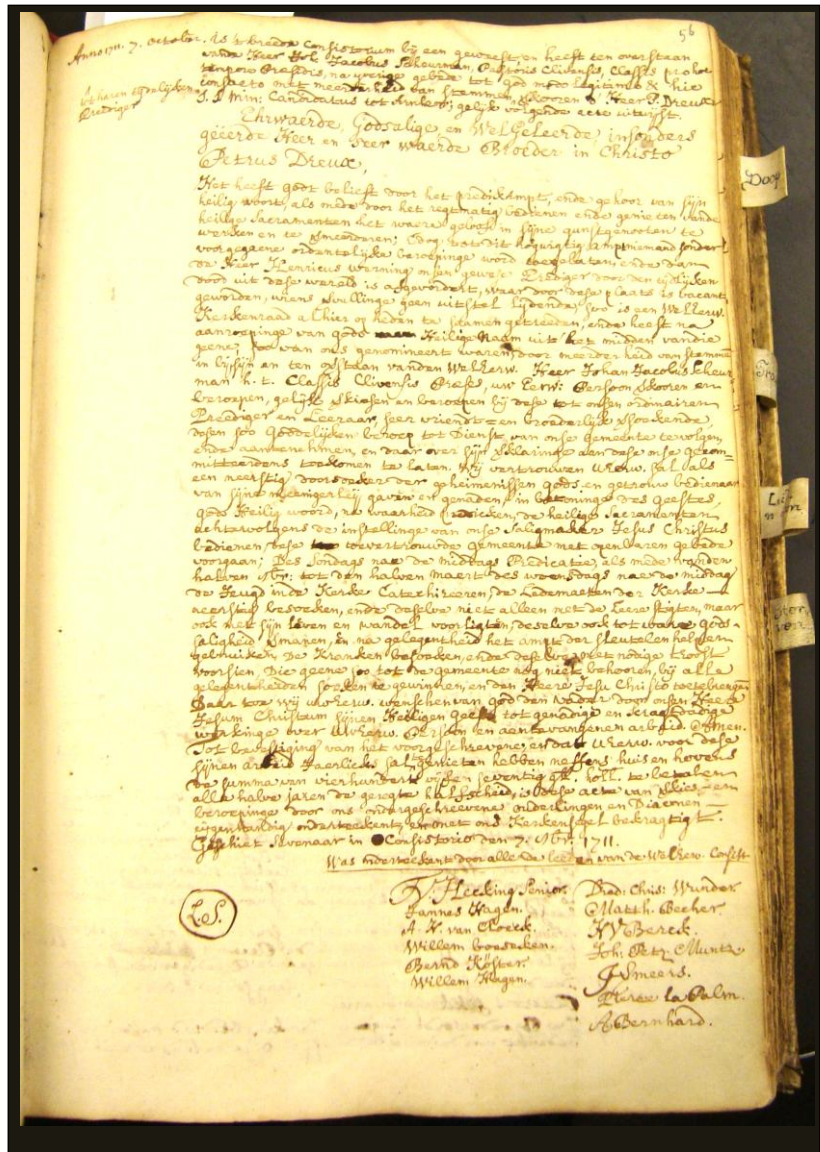 56
Anno 1711. 7. october. is 't breede Consistorium bij een geweest, en heeft ten overstaan
vande Heer Joh. Jacobus Scheurman, Pastoris Clivensis, Classis pro hoc
tempore Præsidis, na vorige gebede tot God modo legitimo & hic
consueto met meerderheid van stemmen, d' Heer P. Dreux
S. S. Min: Candidatus tot Arnhem; gelijk volgende acte uitwijst.
Prediger
Ehrwaerde, Godsalige, en WelGeleerde, insonders
geëerde Heer en seer waerde Broeder in Christo
Petrus Dreux,
Het heeft godt belieft door het predikampt, ende gehoor van sijn
heilig woort, als mede door het regtmatig bedienen ende genieten vande
heilige Sacramenten het waere geloof in sijne gunstgenooten te
werken en te vermeerderen; Dog, niemand sonder
voorgegaene ordentelijke beroepinge word toegelaten, ende dan
de Heer Henricus Werning onsen gewese Prediger door den tijdlijken
dood uit dese wereld is afgevordert, waer door dese plaats is vacant
geworden, wiens vervullinge geen uitstel lijdende, soo is een WelEerw.
Kerkenraad alhier op heden te samen getreeden, ende heeft na
aanroepinge van gods Heilige Naam uit het midden van die
geene, soo van ons genomineert waren, door meerderheid van stemmen
in bijsijn en ten overstaan vanden WelEerw. Heer Johan Jacobus Scheur
man h. t. Classis Clivensis Præses, uw Eerw: Persoon verkooren en
beroepen, gelijk verkiesen en beroepen bij dese tot onsen ordinairen
Prediger en Leeraar, seer vriendt- en broederlijk versoekende,
desen soo Goddelijken beroep tot Dienst van onse gemeente te volgen,
ende aantenehmen, en daar over sijn verklaringe aan dese onse gecom=
mitteerdens toekomen te laten. Wij vertrouwen UEerw. sal als
een neerstig doorsoeker der geheimenissen gods, en getrouw bedienaar
van sijne meenigerleij gaven en genaden, in betooninge des geestes,
gods Heilig woord, na waarheid prediken, de heilige Sacramenten
achtervolgens de instellinge van onse Saligmaker Jesus Christus
bedienen, dese toevertrouwde gemeente met openbaren gebede
voorgaan; Des Sondags nae de middags Predicatie, als mede vanden
halven 9br: tot den halven Maert des woensdags nae de middag
de Jeugd inde Kerke Catechiseeren, de Ledemaeten der Kerke
neerstig besoeken, ende deselve niet alleen met de Leere stigten, maar
ook met sijn leven en wandel voor ligten, deselve ook tot waere gods=
saligheid vermanen, en na gelegentheid het ampt der sleutelen helpen
gebruiken. De Kranken besoeken, ende deselve met nodige troost
voorsien. Die geene soo tot de gemeente nog niet behooren, bij alle
gelegentheiden soeken te gewinnen, en den Heere Jesu Christo toetebrengen
Daar toe wij uwEerw. wenschen van god den Vader door onsen Heere
Jesum Christum sijnen Heiligen Geest tot genadige en kragtdadige
werkinge over UwEerw. Persoon en aentevangenen arbeid. Amen.
Tot bevestiging van het voorgeschrevene, en dat UEerw. voor dese
sijnen arbeid Jaerlicks sal genieten hebben neffens huis en hovens
de summa van vierhundert vijf en seventig gl. holl. te betalen
alle halve jaren de geregte helfscheid, is dese acte van verkies- en
beroepinge door ons ondergeschreevene ouderlingen en Diaconen
eigenhandig onderteekent, en met ons Kerkensegel bekragtigt.
Geschiet Sevenaar in Consistorio den 7. 8br. 1711.
Was onderteekent door alle de leeden van de WelEerw. Consist.
L.S.
V. Heeking Senior. Died: Chris: Wunder.
Jannes Hagen. Matth. Becher.
A. H. van Cloeck. H V Berck.
Willem Goossken. Joh. Petr. Muntz.
Bernd Köster. J Smeers.
Willem Hagen. Pierre la Palm.
A Bernhard.
Doop